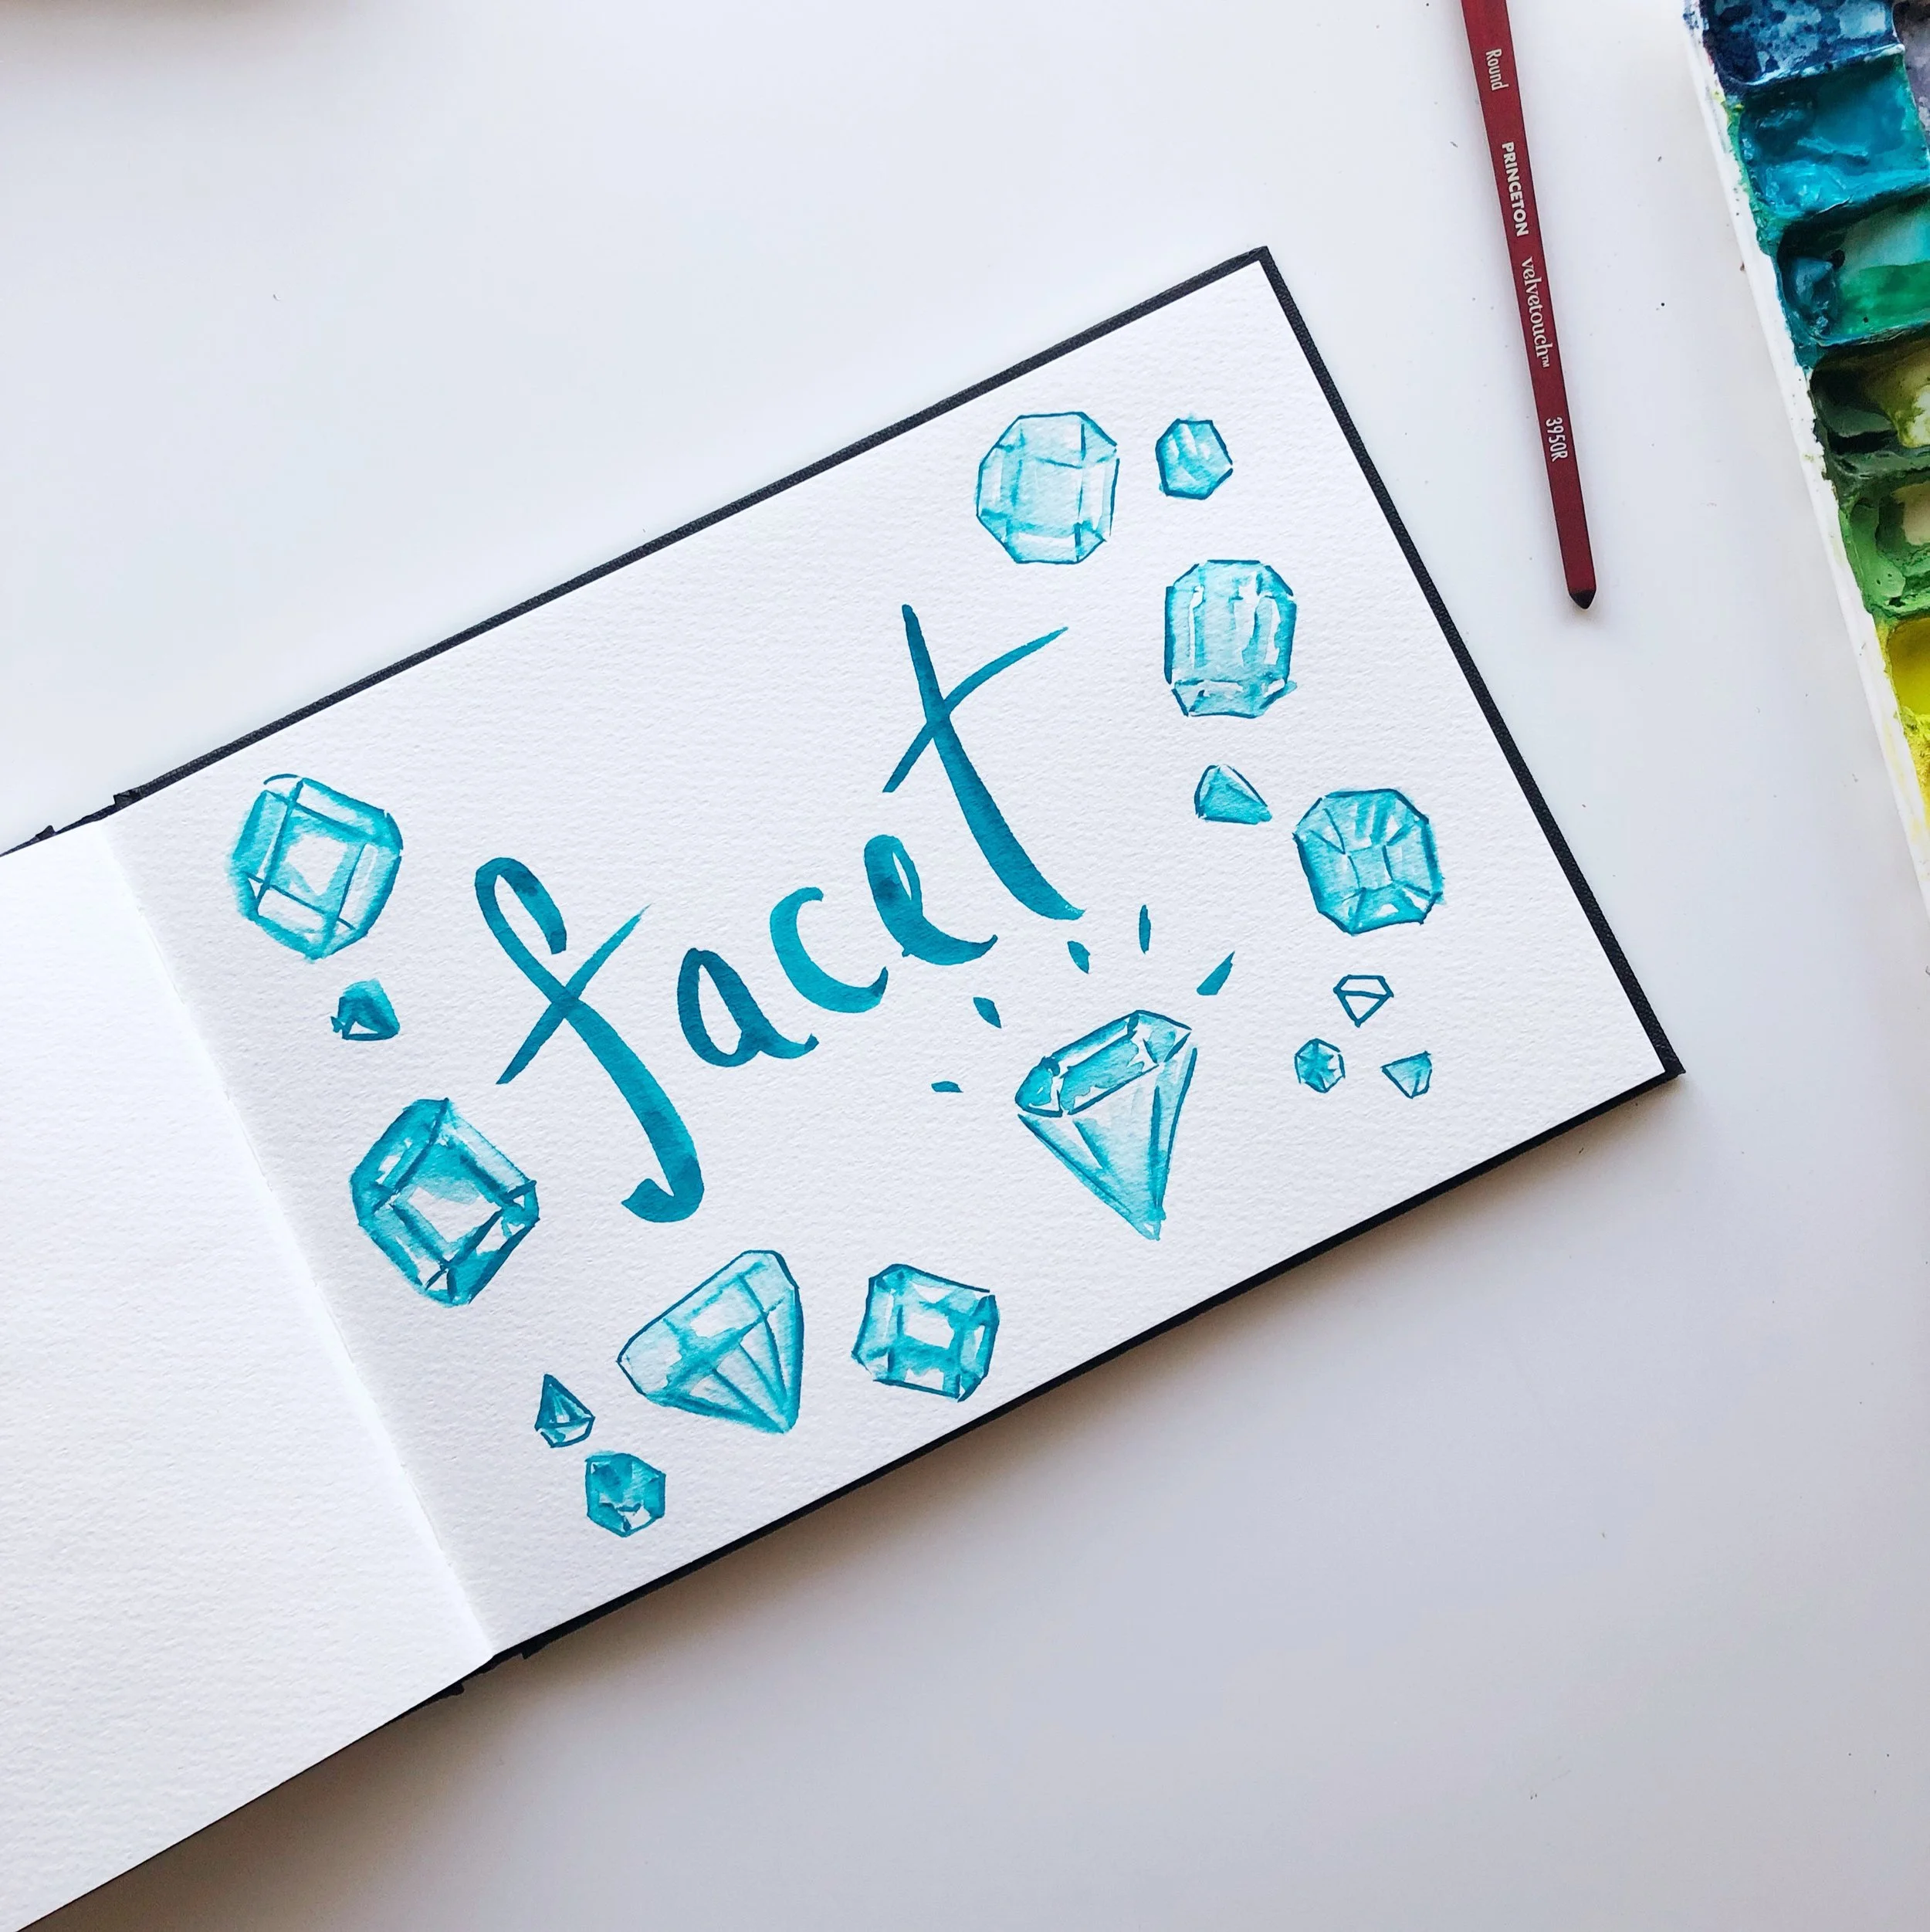 facet
Round PRINCETON velvetouch™ 3950R